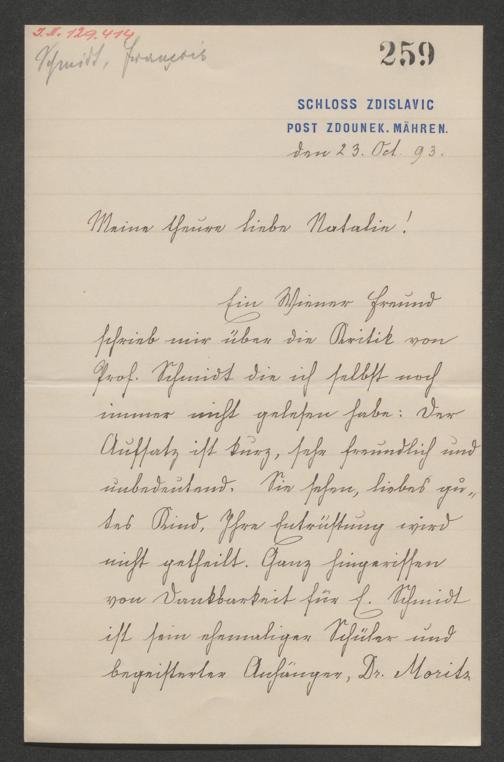 J.N. 129.414
Schmidt, François
259
SCHLOSS ZDISLAVIC
POST ZDOUNEK. MÄHREN.
den 23. Oct. 93.
Meine theure liebe Natalie!
Ein Wiener Freund
schrieb mir über die Kritik von
Prof. Schmidt die ich selbst noch
immer nicht gelesen habe: Der
Aufsatz ist kurz, sehr freundlich und
unbedeutend. Sie sehen, liebes gu„
tes Kind, Ihre Entrüstung wird
nicht getheilt. Ganz hingerissen
von Dankbarkeit für E. Schmidt
ist sein ehemaliger Schüler und
begeisterter Anhänger, Dr. Moritz